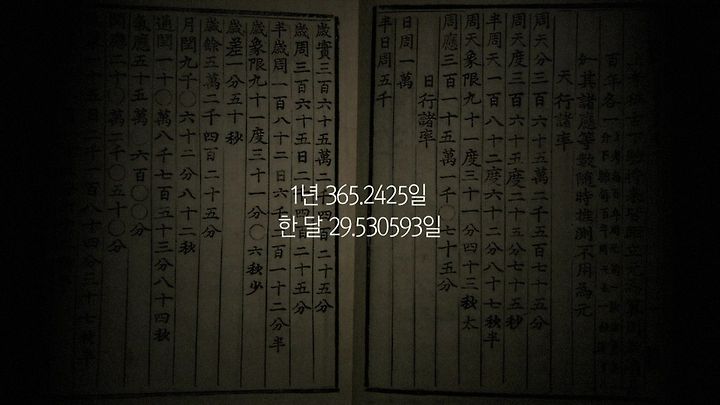 1년 365.2425일
한 달 29.530593일
百年各一
如其諸應等數隨時推測不用為元
天行諸率
周天分三百六十五萬二千五百七十五分
周天度三百六十五度二十五分七十五秒
半周天一百八十二度六十二分八十七秒半
周天象限九十一度三十一分四十三秒太
周應三百一十五萬一千〇七十五分
日行諸率
日周一萬
半日周五千
歲實三百六十五萬二千四百二十五分
歲周三百六十五日二千四百二十五分
半歲周一百八十二日六千二百一十二分半
歲象限九十一度三十一分〇六秒少
歲差一分五十秒
歲餘五萬二千四百二十五分
月閏九千〇六十二分八十二秒
通閏一十〇萬八千七百五十三分八十四秒
氣應五十五萬 六百〇〇分
閏應二十〇萬二千〇五十〇分
十五日二千一百八十四分三十七秒半